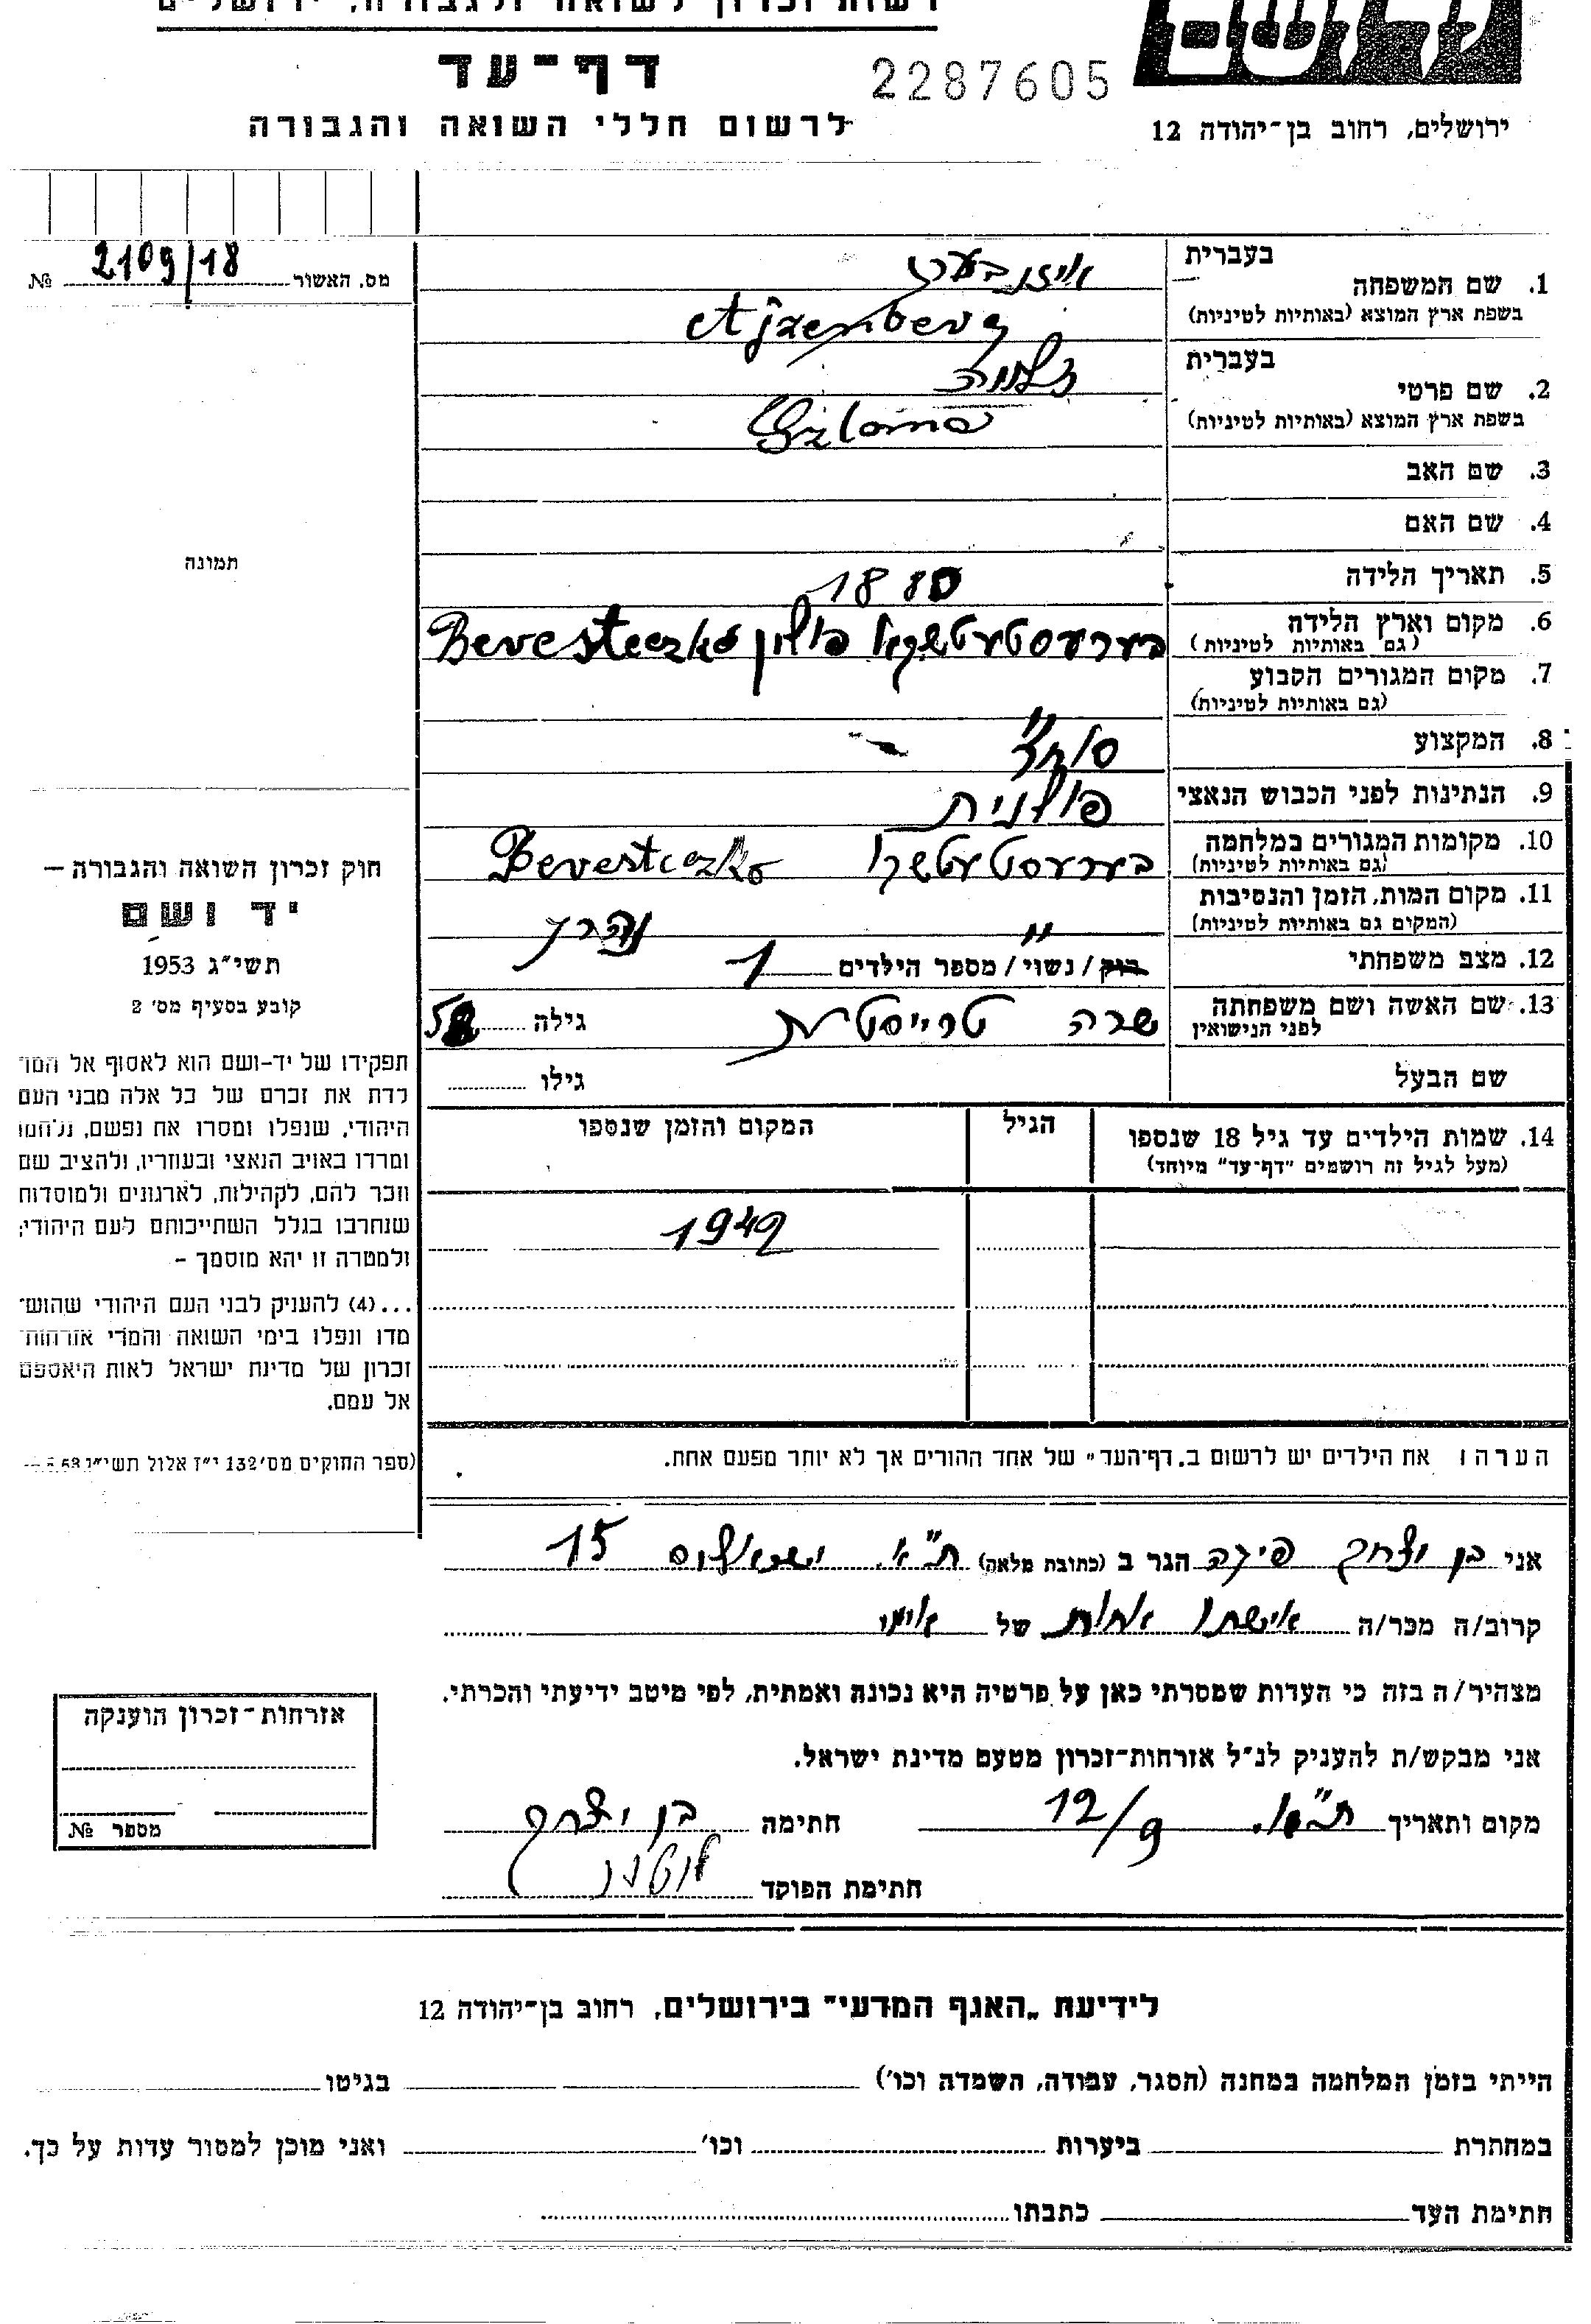 רשות זכרון לשואה ולגבורה, ירושלים
דף-עד
2287605
לרשום חללי השואה והגבורה
ירושלים, רחוב בן-יהודה 12
מס. האשור 2109/18 №
1. שם המשפחה
בעברית איזנבערג
בשפת ארץ המוצא (באותיות לטיניות) Ajzenberg
2. שם פרטי
בעברית שלמה
בשפת ארץ המוצא (באותיות לטיניות) Szloma
3. שם האב
4. שם האם
5. תאריך הלידה 1880
6. מקום וארץ הלידה
(גם באותיות לטיניות) בערעסטעטשקא פולין Beresteczko
7. מקום המגורים הקבוע
(גם באותיות לטיניות) "
8. המקצוע סוחר
9. הנתינות לפני הכבוש הנאצי פולנית
10. מקומות המגורים במלחמה
(גם באותיות לטיניות) בערעסטעטשקא Beresteczko
11. מקום המות, הזמן והנסיבות
(המקום גם באותיות לטיניות) "
12. מצב משפחתי רווק / נשוי / מספר הילדים 1
13. שם האשה ושם משפחתה
לפני הנישואין שרה גילה
שם הבעל גילו
14. שמות הילדים עד גיל 18 שנספו
(מעל לגיל זה רושמים "דף-עד" מיוחד)
הגיל
המקום והזמן שנספו
1942
תמונה
חוק זכרון השואה והגבורה –
יד ושם
תשי"ג 1953
קובע בסעיף מס' 2
תפקידו של יד-ושם הוא לאסוף אל המו
לדת את זכרם של כל אלה מבני העם
היהודי, שנפלו ומסרו את נפשם, נלחמו
ומרדו באויב הנאצי ובעוזריו, ולהציב שם
וזכר להם, לקהילות, לארגונים ולמוסדות
שנחרבו בגלל השתייכותם לעם היהודי;
ולמטרה זו יהא מוסמך –
...(4) להעניק לבני העם היהודי שהוש־
מדו ונפלו בימי השואה והמרי אזרחות־
זכרון של מדינת ישראל לאות היאספם
אל עמם.
(ספר החוקים מס' 132 י"ז אלול תשי"ג
הערה: את הילדים יש לרשום ב„דף-העד" של אחד ההורים אך לא יותר מפעם אחת.
אני בן יצחק הגר ב (כתובת מלאה) ת"א. 15
קרוב/ה מכר/ה אישתו אחות של אימי
מצהיר/ה בזה כי העדות שמסרתי כאן על פרטיה היא נכונה ואמתית, לפי מיטב ידיעתי והכרתי.
אני מבקש/ת להעניק לנ"ל אזרחות-זכרון מטעם מדינת ישראל.
מקום ותאריך ת"א. 12/9 חתימה בן יצחק
חתימת הפוקד
אזרחות-זכרון הוענקה
מספר №
לידיעת „האגף המדעי" בירושלים, רחוב בן-יהודה 12
הייתי בזמן המלחמה במחנה (הסגר, עבודה, השמדה וכו') בגיטו
במחתרת ביערות וכו' ואני מוכן למסור עדות על כך.
חתימת העד כתבתו